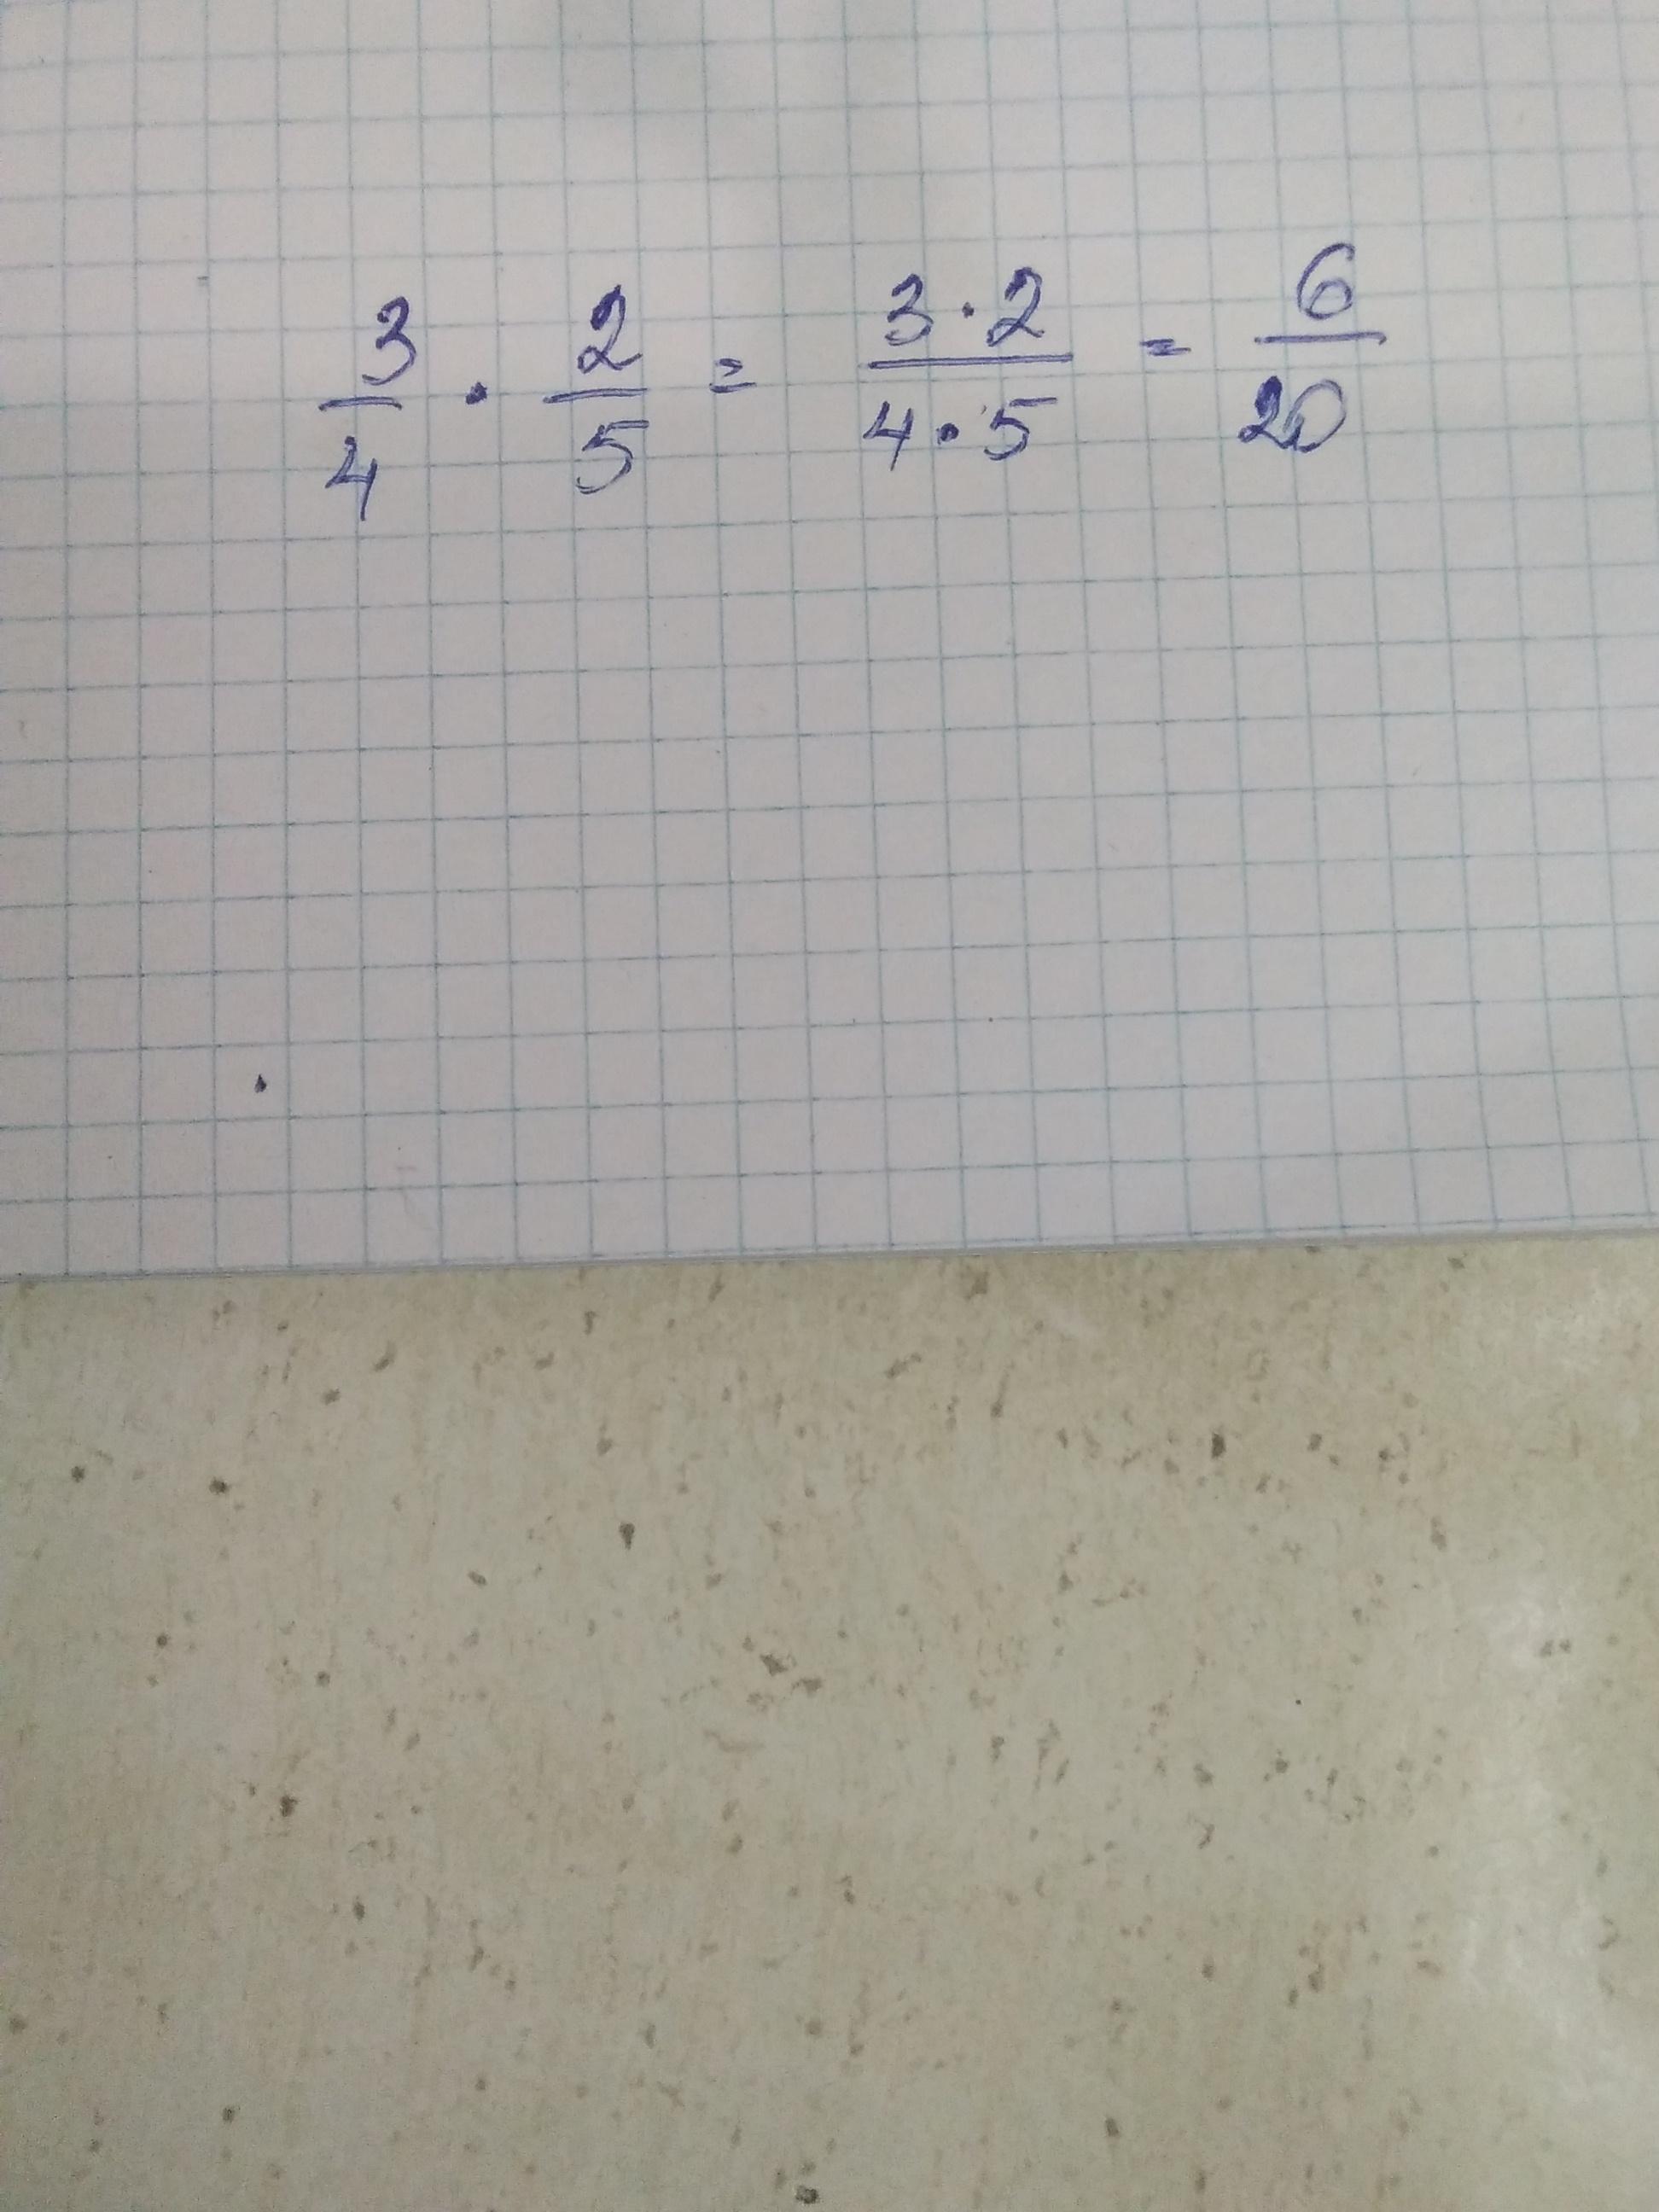 3/4 · 2/5 = 3·2/4·5 = 6/20